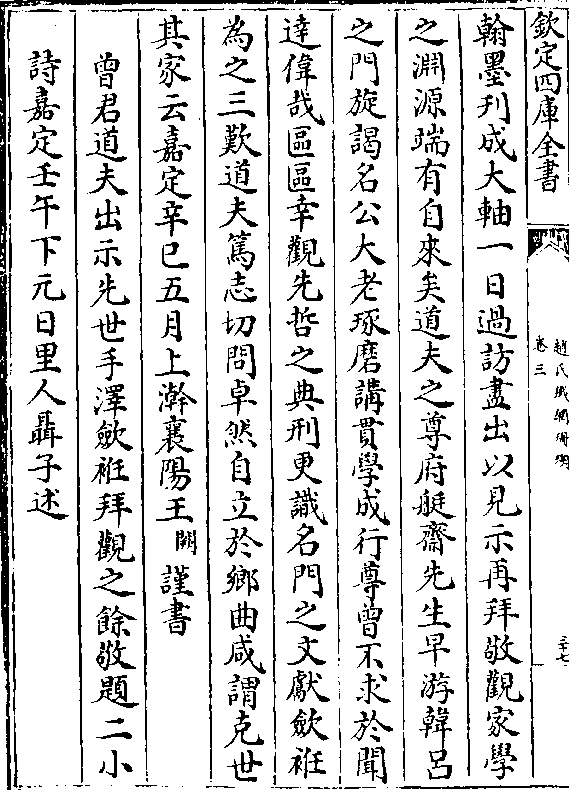 欽定四庫全書
趙氏鐵網珊瑚
卷三
二十七
翰墨刋成大軸一日過訪盡出以見示再拜敬觀家學
之淵源端有自來矣道夫之尊府艇齋先生早游韓呂
之門旋謁名公大老琢磨講貫學成行尊曾不求於聞
達偉哉區區幸觀先哲之典刑更識名門之文獻歛袵
為之三歎道夫篤志切問卓然自立於鄉曲咸謂克世
其家云嘉定辛巳五月上澣襄陽王闕謹書
曾君道夫出示先世手澤歛袵拜觀之餘敬題二小
詩嘉定壬午下元日里人聶子述